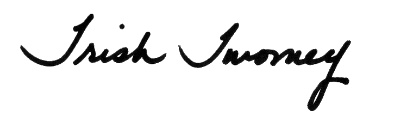 Trish Twomey